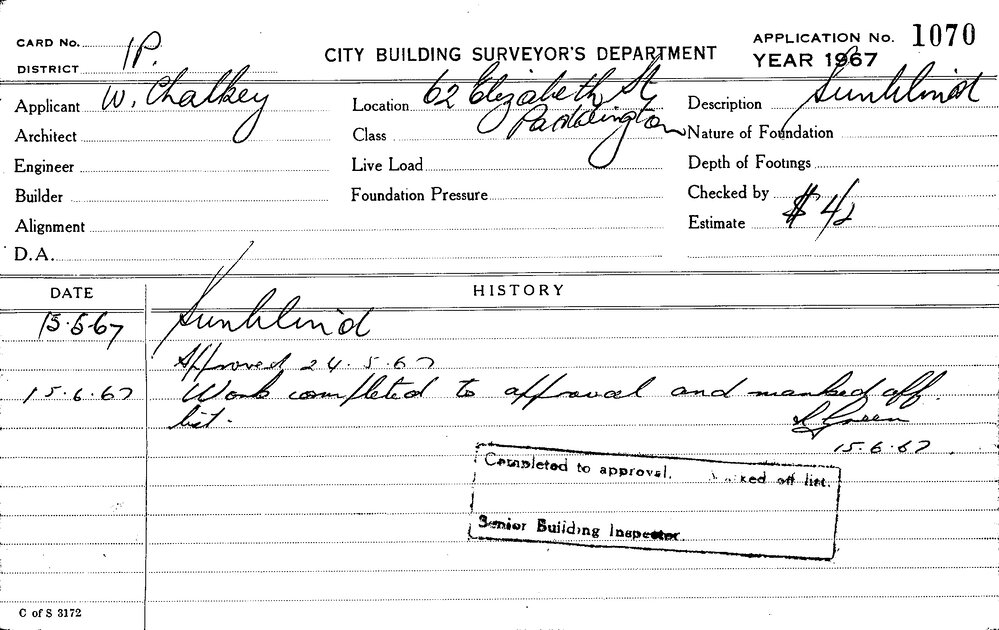 CARD No.
DISTRICT 1P.
CITY BUILDING SURVEYOR'S DEPARTMENT
APPLICATION No. 1070
YEAR 1967
Applicant W. Chalkey
Location 62 Elizabeth St
Paddington
Description Sunblind
Architect
Class
Nature of Foundation
Engineer
Live Load
Depth of Footings
Builder
Foundation Pressure
Checked by
Alignment
Estimate $42
D.A.
DATE HISTORY
15.5.67 Sunblind
Approved 24.5.67
15.6.67 Work completed to approval and marked off
list. Green
15.6.67.
Completed to approval. off list.
Senior Building Inspector
C of S 3172